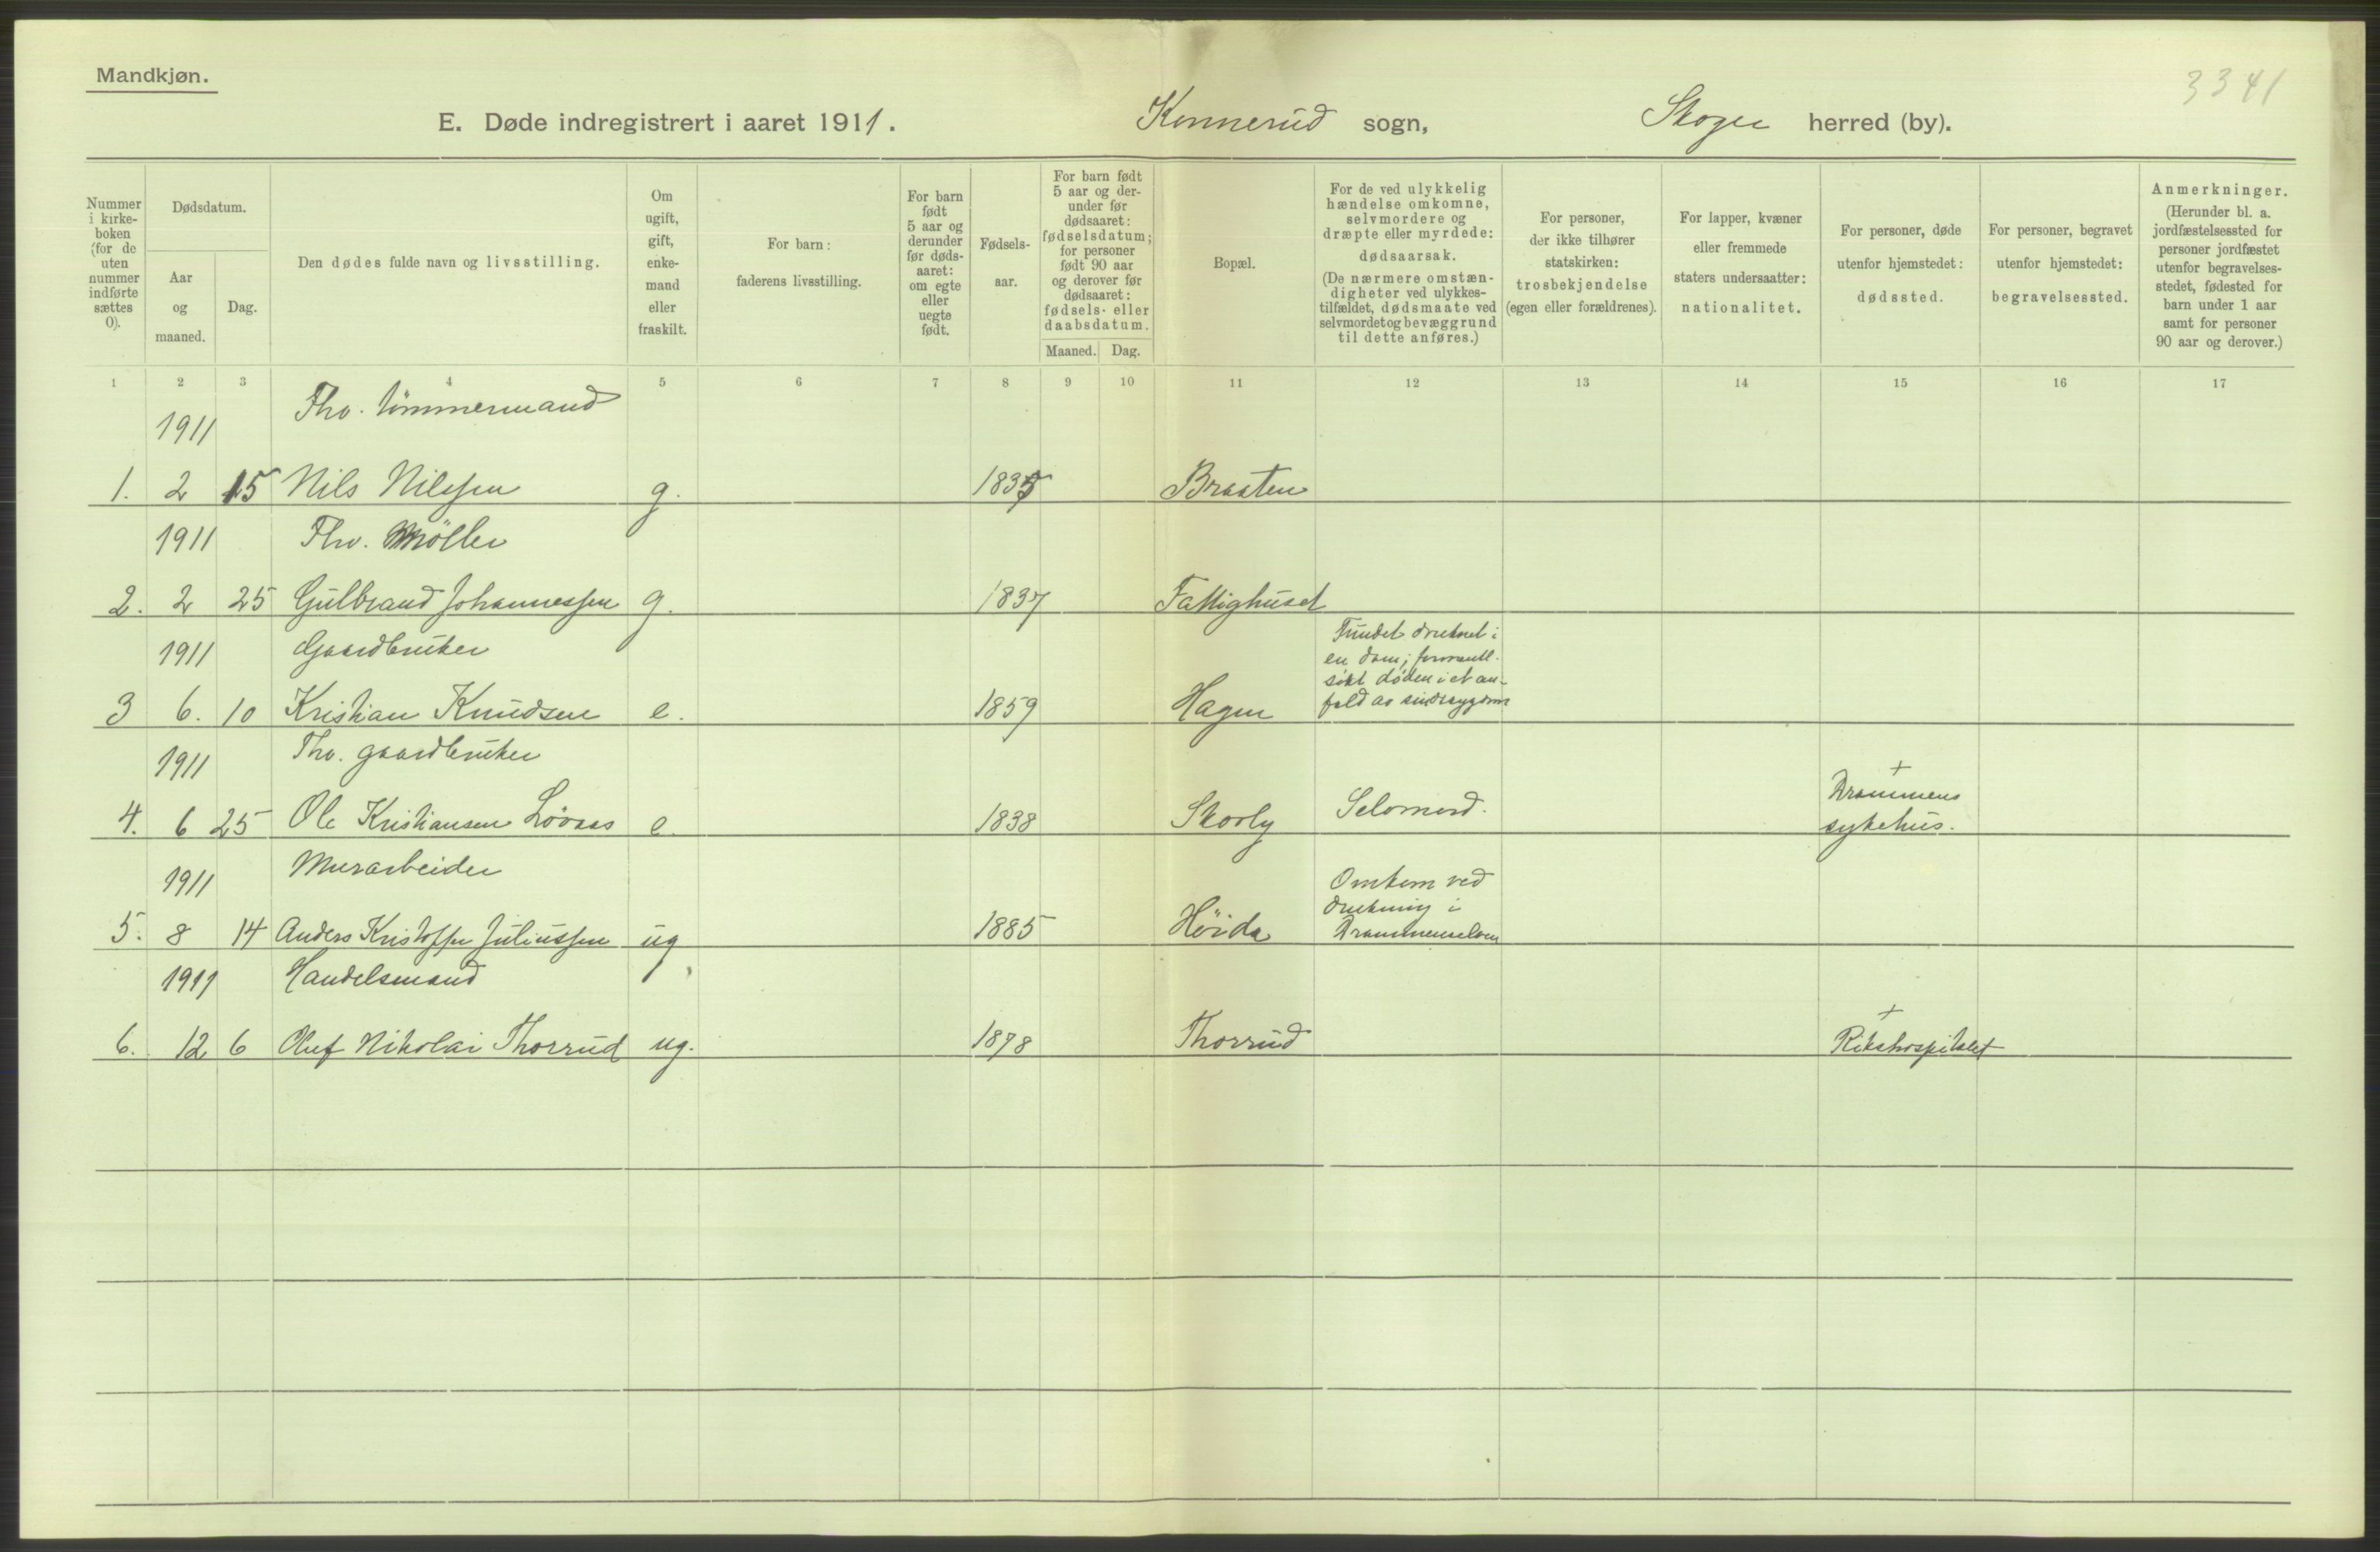 Mandkjøn.
3341
E. Døde indregistrert i aaret 1911. Konnerud sogn, Skoger herred (by).
Nummer i kirke-boken (for de uten nummer indførte sættes 0).
Dødsdatum.
Aar og maaned.
Dag.
Den dødes fulde navn og livsstilling.
Om ugift, gift, enke-mand eller fraskilt.
For barn: faderens livsstilling.
For barn født 5 aar og derunder før døds-aaret: om egte eller uegte født.
Fødsels-aar.
For barn født 5 aar og der-under før dødsaaret: fødselsdatum; for personer født 90 aar og derover før dødsaaret: fødsels- eller daabsdatum.
Maaned. Dag.
Bopæl.
For de ved ulykkelig hændelse omkomne, selvmordere og dræpte eller myrdede: dødsaarsak.
(De nærmere omstæn-digheter ved ulykkes-tilfældet, dødsmaate ved selvmordet og bevæggrund til dette anføres.)
For personer, der ikke tilhører statskirken: trosbekjendelse (egen eller forældrenes).
For lapper, kvæner eller fremmede staters undersaatter: nationalitet.
For personer, døde utenfor hjemstedet: dødssted.
For personer, begravet utenfor hjemstedet: begravelsessted.
Anmerkninger.
(Herunder bl. a. jordfæstelsessted for personer jordfæstet utenfor begravelses-stedet, fødested for barn under 1 aar samt for personer 90 aar og derover.)
1 2 3 4 5 6 7 8 9 10 11 12 13 14 15 16 17
1911 Fhv. tömmermand
1. 2 15 Nils Nilssen g. 1835 Braaten
1911 Fhv. Möller
2. 2 25 Gulbrand Johannessen g. 1837 Fattighuset
1911 Gaardbruker
3 6. 10 Kristian Knudsen e. 1859 Hagen
Fundet druknet i
en dam; formentl.
sökt döden i et an-
fald av sindssygdom
1911 Fhv. gaardbruker
4. 6 25 Ole Kristiansen Lövaas e. 1838 Skorly Selvmord. + Drammens
sykehus.
1911 Murarbeider
5. 8 14 Anders Kristoffer Juliussen ug 1885 Höida
Omkom ved
drukning i
Drammenselven
1911 Handelsmand
6. 12 6 Oluf Nikolai Thorrud ug. 1878 Thorrud + Rikshospitalet